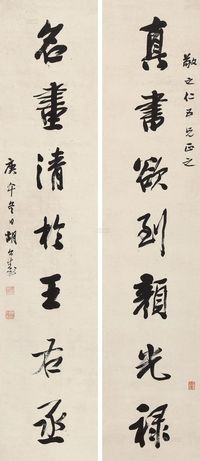 敬之仁五兄正之
真書欲到顏光祿
名畫清於王右丞
庚午冬日胡公壽